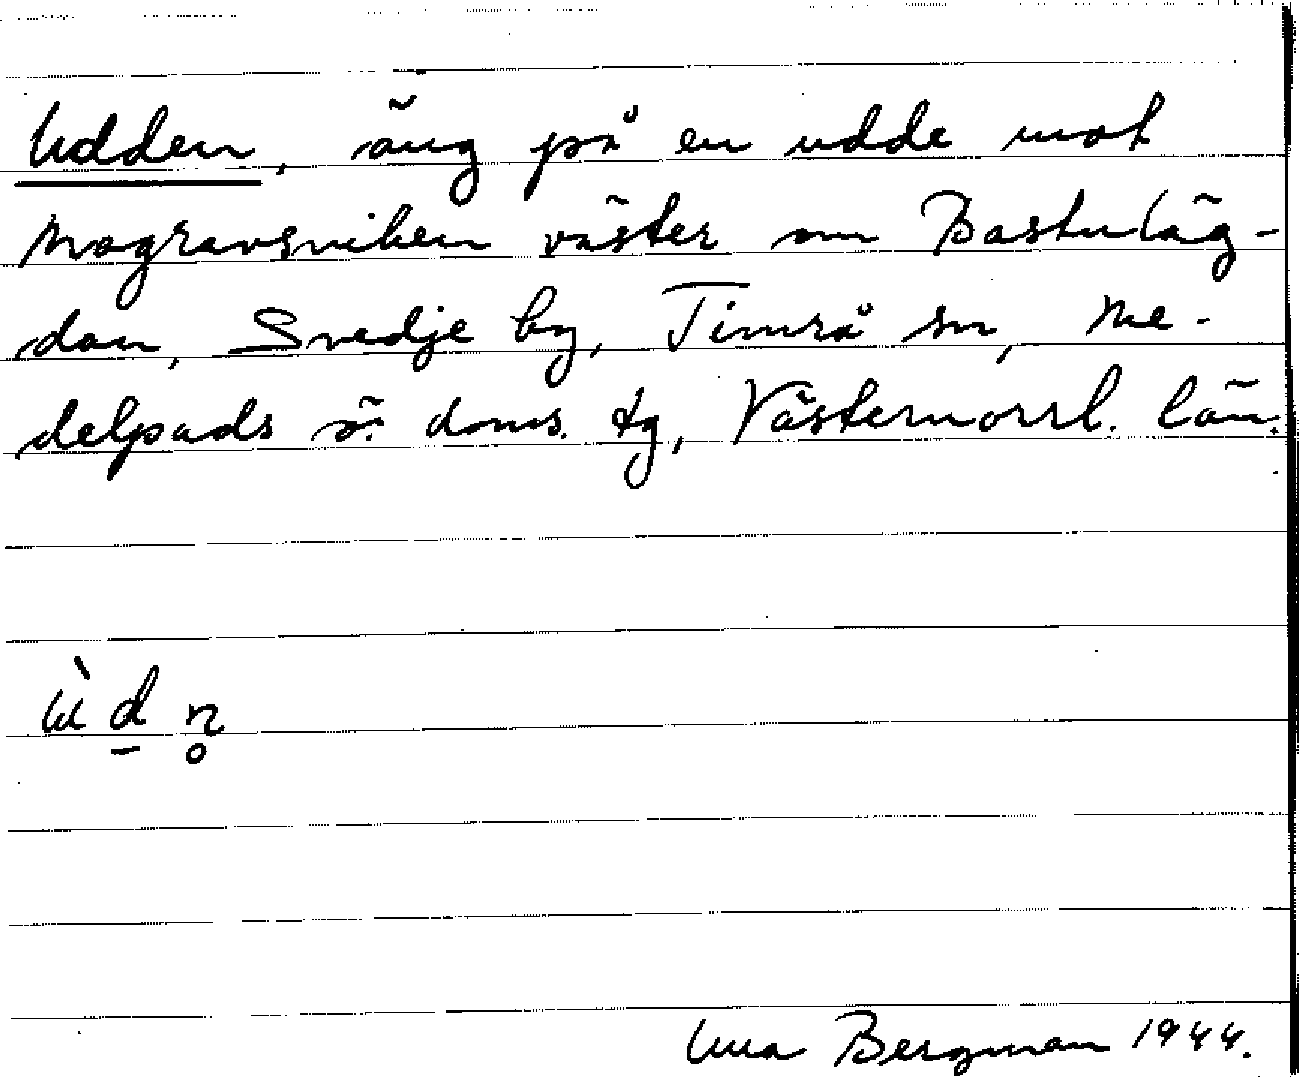 Udden, äng på en udde mot
Mogravsviken väster om Bastuläg-
dan, Svedje by, Timrå sn, Me-
delpads ö. doms. tg, Västernorrl. län.
ùdn̥
Una Bergman 1944.